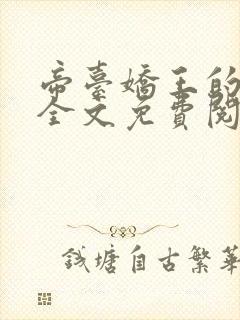 帝臺嬌王的
全文免費閱
錢塘自古繁華